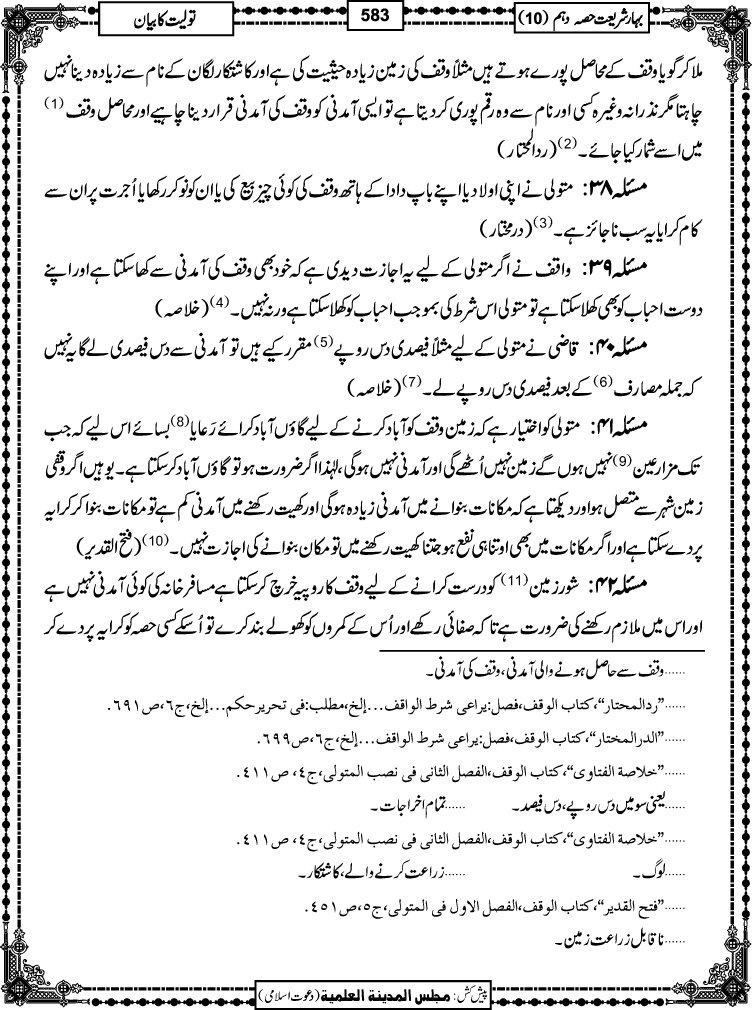 بہارِ شریعت حصہ دہم (10)
583
تولیت کا بیان
ملا کر گویا وقف کے محاصل پورے ہوتے ہیں مثلاً وقف کی زمین زیادہ حیثیت کی ہے اور کاشتکار لگان کے نام سے زیادہ دینا نہیں
چاہتا مگر نذرانہ وغیرہ کسی اور نام سے وہ رقم پوری کر دیتا ہے تو ایسی آمدنی کو وقف کی آمدنی قرار دینا چاہیے اور محاصل وقف (1)
میں اسے شمار کیا جائے۔ (2) (ردالمحتار)
مسئلہ ۳۸: متولی نے اپنی اولاد یا اپنے باپ دادا کے ہاتھ وقف کی کوئی چیز بیع کی یا ان کو نوکر رکھا یا اُجرت پر ان سے
کام کرایا یہ سب ناجائز ہے۔ (3) (درمختار)
مسئلہ ۳۹: واقف نے اگر متولی کے لیے یہ اجازت دیدی ہے کہ خود بھی وقف کی آمدنی سے کھا سکتا ہے اور اپنے
دوست احباب کو بھی کھلا سکتا ہے تو متولی اس شرط کی بموجب احباب کو کھلا سکتا ہے ورنہ نہیں۔ (4) (خلاصہ)
مسئلہ ۴۰: قاضی نے متولی کے لیے مثلاً فیصدی دس روپے (5) مقرر کیے ہیں تو آمدنی سے دس فیصدی لے گا یہ نہیں
کہ جملہ مصارف (6) کے بعد فیصدی دس روپے لے۔ (7) (خلاصہ)
مسئلہ ۴۱: متولی کو اختیار ہے کہ زمین وقف کو آباد کرنے کے لیے گاؤں آباد کرائے رَعایا (8) بسائے اس لیے کہ جب
تک مزارعین (9) نہیں ہوں گے زمین نہیں اُٹھے گی اور آمدنی نہیں ہوگی، لہٰذا اگر ضرورت ہو تو گاؤں آباد کر سکتا ہے۔ یوہیں اگر وقفی
زمین شہر سے متصل ہو اور دیکھتا ہے کہ مکانات بنوانے میں آمدنی زیادہ ہوگی اور کھیت رکھنے میں آمدنی کم ہے تو مکانات بنوا کر کرایہ
پر دے سکتا ہے اور اگر مکانات میں بھی اوتنا ہی نفع ہو جتنا کھیت رکھنے میں تو مکان بنوانے کی اجازت نہیں۔ (10) (فتح القدیر)
مسئلہ ۴۲: شور زمین (11) کو درست کرانے کے لیے وقف کا روپیہ خرچ کر سکتا ہے مسافر خانہ کی کوئی آمدنی نہیں ہے
اور اس میں ملازم رکھنے کی ضرورت ہے تاکہ صفائی رکھے اور اُس کے کمروں کو کھولے بند کرے تو اُسکے کسی حصہ کو کرایہ پر دے کر
......وقف سے حاصل ہونے والی آمدنی، وقف کی آمدنی۔
......”ردالمحتار“،کتاب الوقف،فصل:یراعی شرط الواقف...إلخ،مطلب:فی تحریرحکم...إلخ،ج٦،ص٦٩١.
......”الدرالمختار“،کتاب الوقف،فصل:یراعی شرط الواقف...إلخ،ج٦،ص٦٩٩.
......”خلاصة الفتاوی“،کتاب الوقف،الفصل الثانی فی نصب المتولی،ج٤، ص٤١١.
......یعنی سو میں دس روپے، دس فیصد۔ ......تمام اخراجات۔
......”خلاصة الفتاوی“،کتاب الوقف،الفصل الثانی فی نصب المتولی،ج٤، ص٤١١.
......لوگ۔ ......زراعت کرنے والے، کاشتکار۔
......”فتح القدیر“،کتاب الوقف،الفصل الاول فی المتولی،ج٥،ص٤٥١.
......ناقابل زراعت زمین۔
پیش کش: مجلس المدینة العلمیة (دعوت اسلامی)